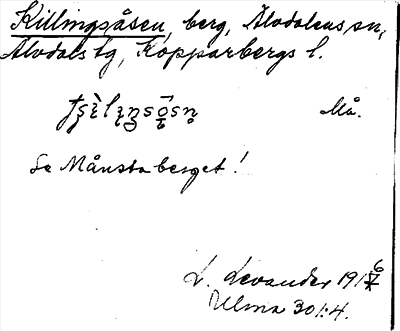 Killingsåsen, berg, Älvdalens sn,
Älvdals tg, Kopparbergs l.
Må.
Se Månstaberget!
L. Levander 1916
Ulma 301:4.